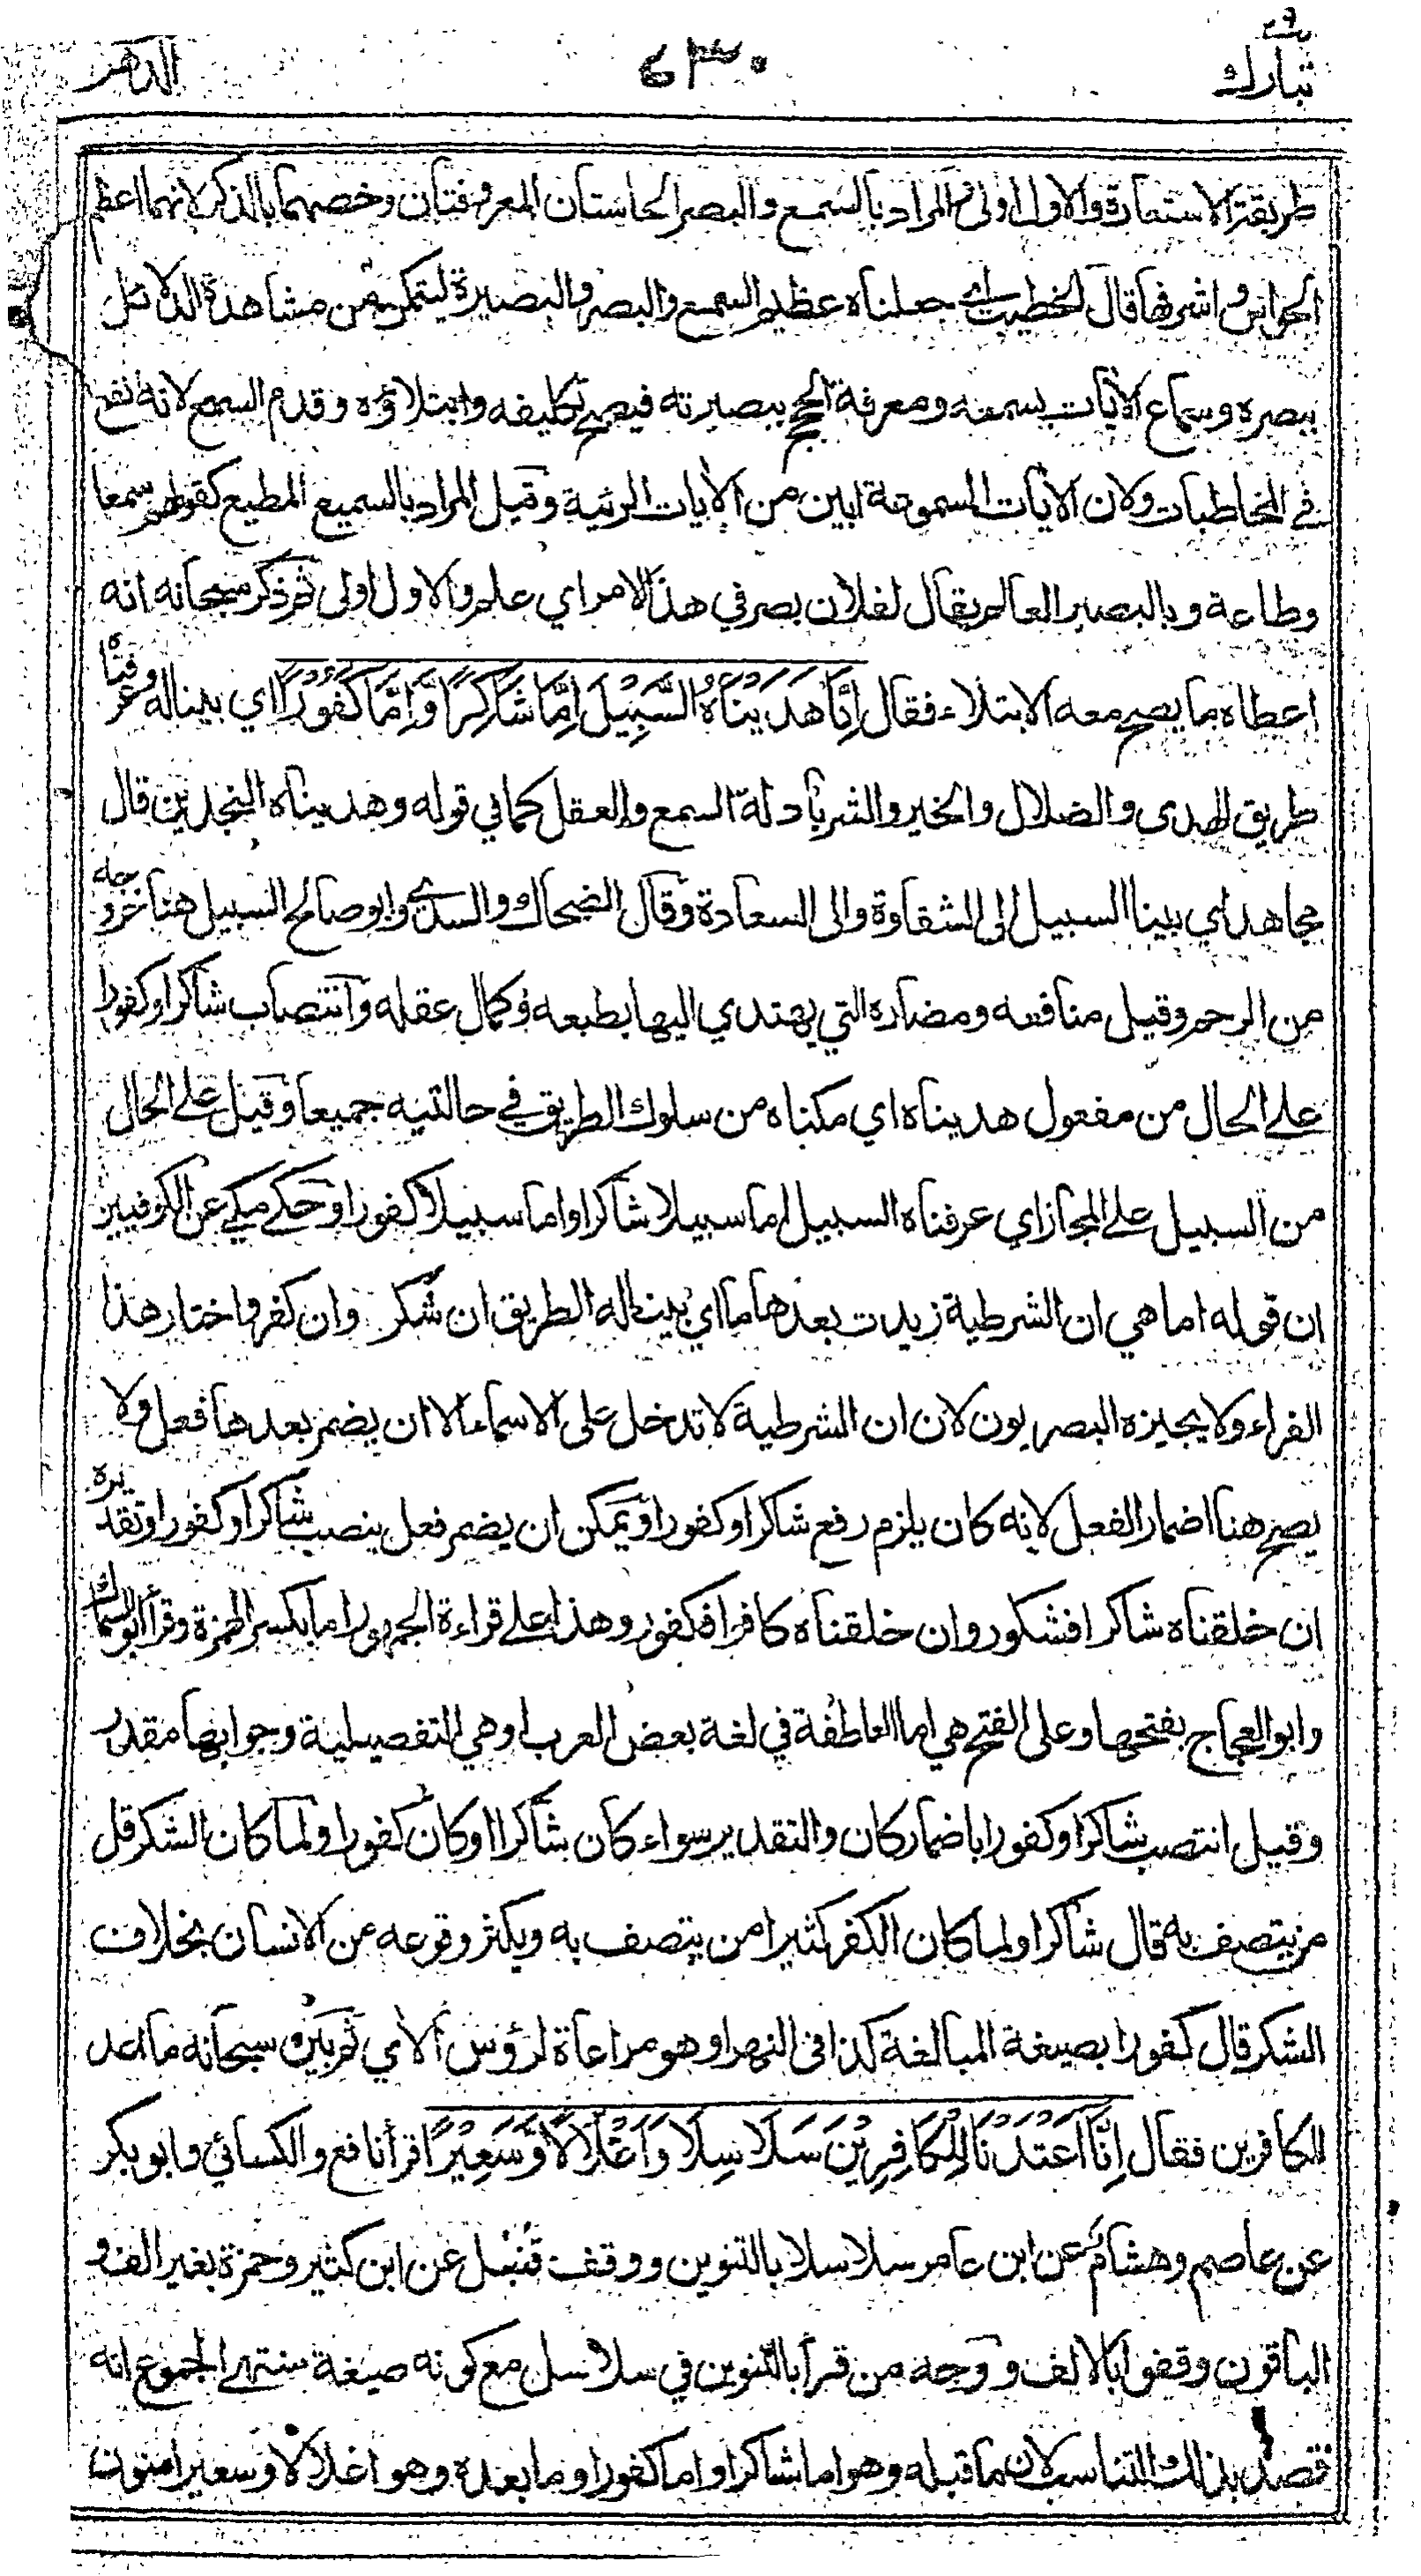 تبارك ٢٩
٦٣٠
الدهر
طريقة الاستعارة والاول اولى ثم المراد بالسمع والبصر الحاستان المعروفتان وخصهما بالذكر لانهما اعظم
الحواس واشرفها قال الخطيب اي جعلناه عظيم السمع والبصر والبصيرة ليتمكن من مشاهدة الدلائل
ببصره وسماع الآيات بسمعه ومعرفة الحجج ببصيرته فيصح تكليفه وابتلاؤه وقدم السمع لانه انفع
في المخاطبات ولان الآيات المسموعة ابين من الآيات المرئية وقيل المراد بالسميع المطيع كقولهم سمعا
وطاعة وبالبصير العالم يقال لفلان بصر في هذا الامر اي علم والاول اولى ثم ذكر سبحانه انه
اعطاه ما يصح معه الابتلاء فقال اِنَّا هَدَيْنَاهُ السَّبِيْلَ اِمَّا شَاكِرًا وَّاِمَّا كَفُوْرًا اي بينا له وعرفناه
طريق الهدى والضلال والخير والشر بادلة السمع والعقل كما في قوله وهديناه النجدين قال
مجاهد اي بينا السبيل الى الشقاوة والى السعادة وقال الضحاك والسدي وابو صالح السبيل هنا خروجه
من الرحم وقيل منافعه ومضاره التي يهتدي اليها بطبعه وكمال عقله وانتصاب شاكرا وكفورا
على الحال من مفعول هديناه اي مكناه من سلوك الطريق في حالتيه جميعا وقيل على الحال
من السبيل على المجاز اي عرفناه السبيل اما سبيلا شاكرا واما سبيلا كفورا وحكى مكي عن الكوفيين
ان قوله اما هي ان الشرطية زيدت بعدها ما اي بينا له الطريق ان شكر وان كفر واختار هذا
الفراء ولا يجيزه البصريون لان ان الشرطية لا تدخل على الاسماء الا ان يضمر بعدها فعل ولا
يصح هنا اضمار الفعل لانه كان يلزم رفع شاكرا وكفورا ويمكن ان يضمر فعل ينصب شاكرا وكفورا وتقديره
ان خلقناه شاكرا فشكور وان خلقناه كافرا فكفور وهذا على قراءة الجمهور اما بكسر الهمزة وقرأ ابو السماك
وابو العجاج بفتحها وعلى الفتح هي اما العاطفة في لغة بعض العرب او هي التفصيلية وجوابها مقدر
وقيل انتصب شاكرا وكفورا باضمار كان والتقدير سواء كان شاكرا او كان كفورا ولما كان الشكر قل
من يتصف به قال شاكرا ولما كان الكفر كثيرا من يتصف به ويكثر وقوعه من الانسان بخلاف
الشكر قال كفورا بصيغة المبالغة كذا في النهر او هو مراعاة لرؤس الآي ثم بين سبحانه ما اعد
للكافرين فقال اِنَّا اَعْتَدْنَا لِلْكَافِرِيْنَ سَلَاسِلَا وَاَغْلَالًا وَّسَعِيْرًا قرأ نافع والكسائي وابو بكر
عن عاصم وهشام عن ابن عامر سلاسلا بالتنوين ووقف قنبل عن ابن كثير وحمزة بغير الف و
الباقون وقفوا بالالف ووجه من قرأ بالتنوين في سلاسل مع كونه صيغة منتهى الجموع انه
قصد بذلك التناسب لان ما قبله وهو اما شاكرا واما كفورا وما بعده وهو اغلالا وسعيرا منون